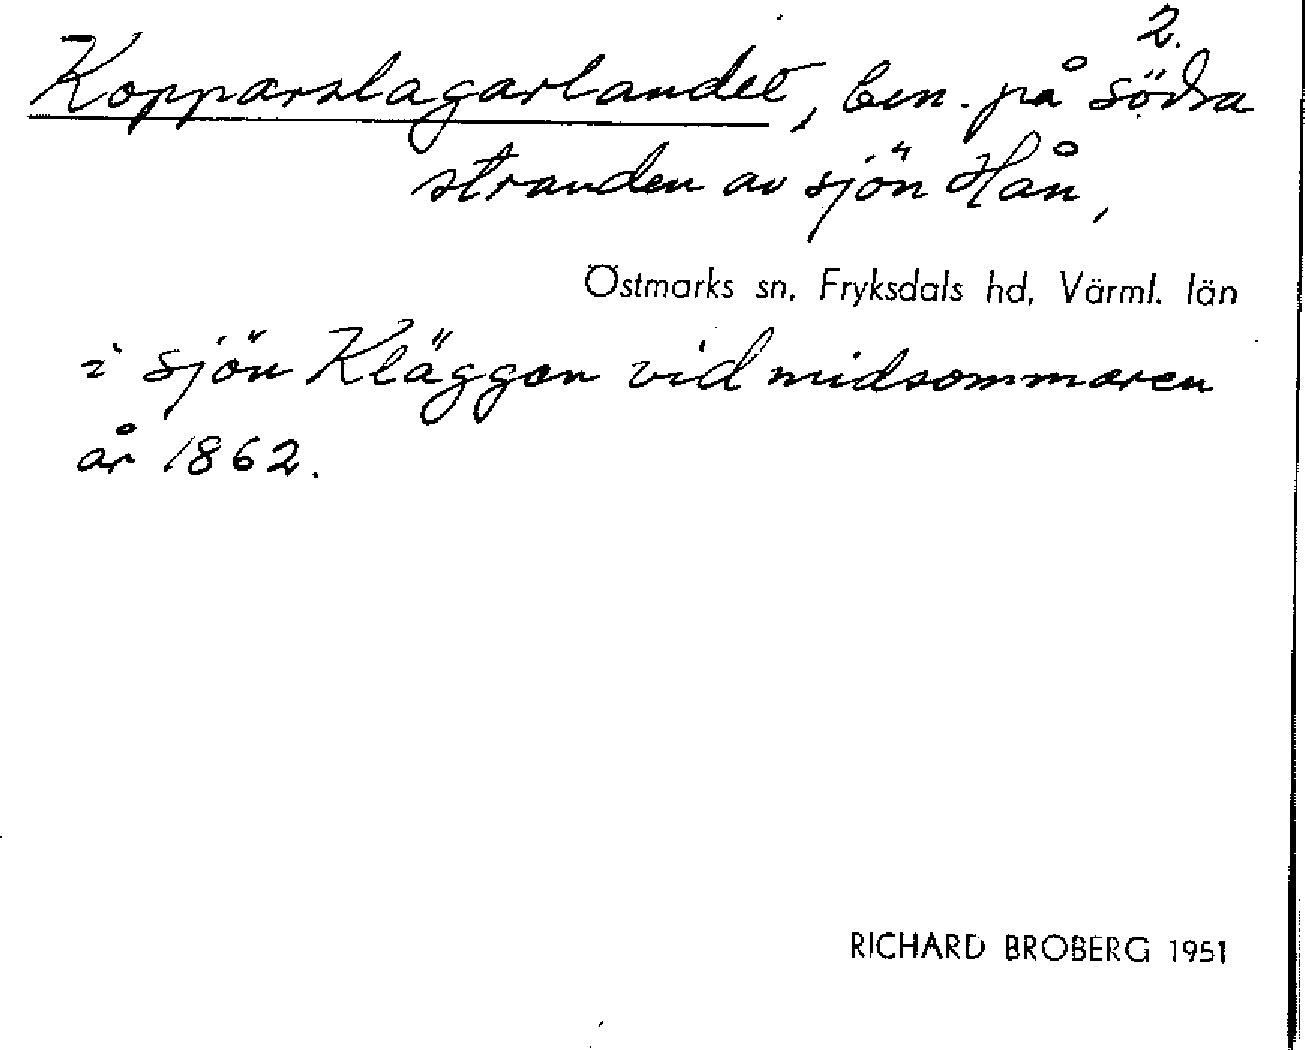 2.
Kopparslagarlandet, ben. på södra
stranden av sjön Hån,
Östmarks sn, Fryksdals hd, Värml. län
i sjön Kläggen vid midsommaren
år 1862.
RICHARD BROBERG 1951